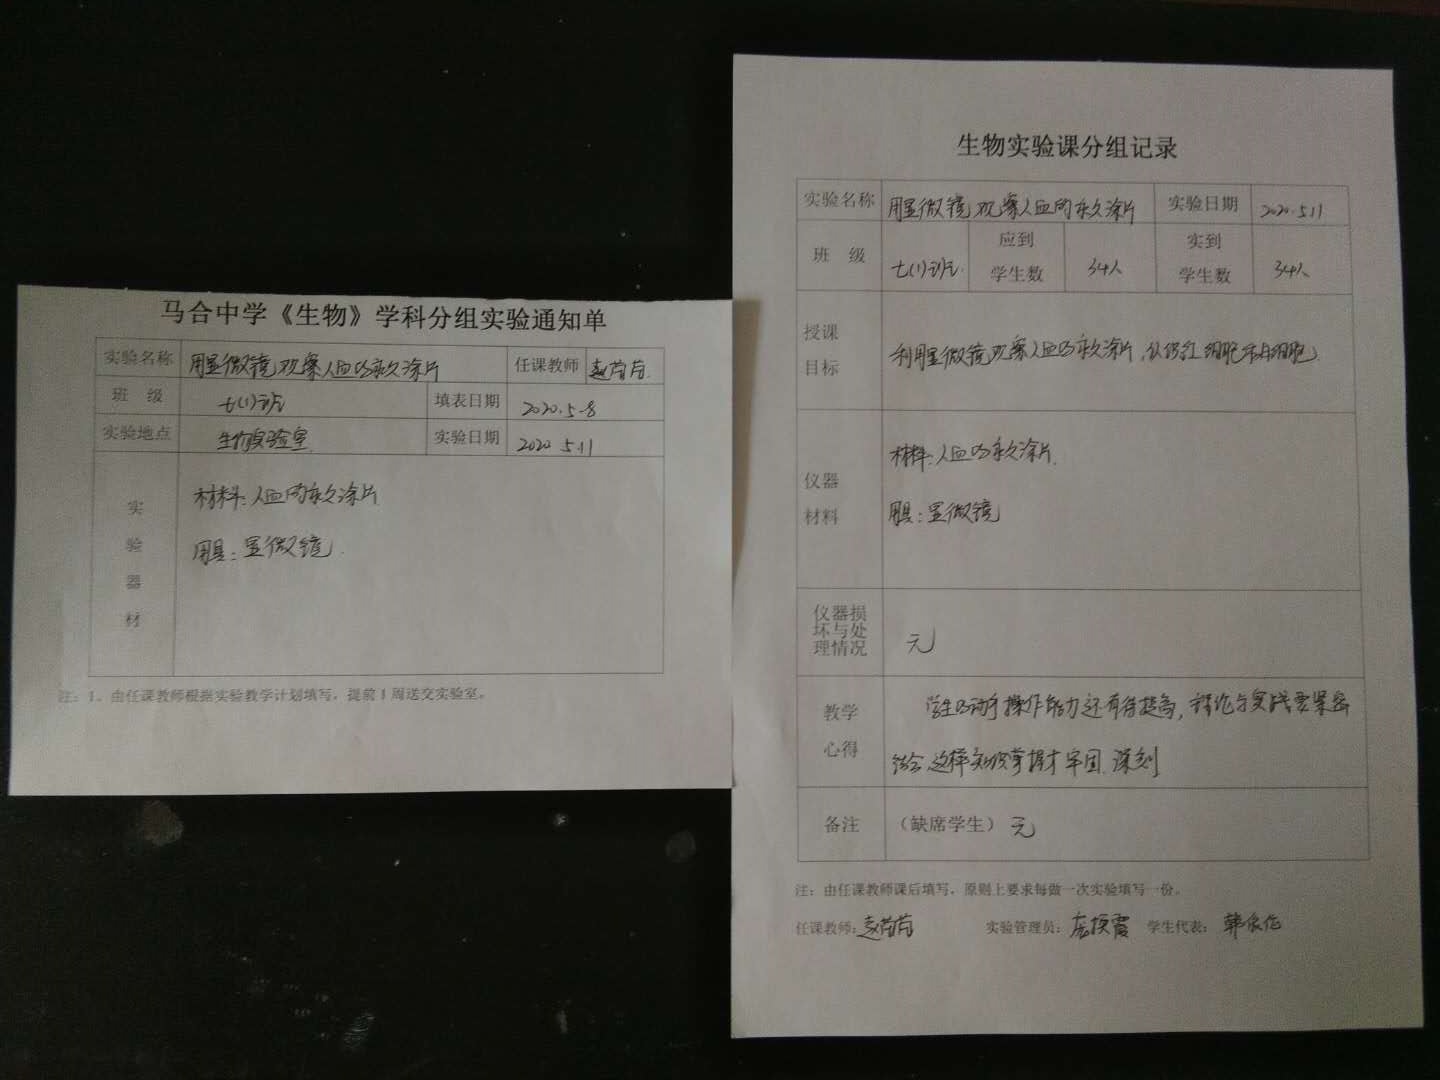 马合中学《生物》学科分组实验通知单
实验名称 用显微镜观察人血的永久涂片 任课教师 赵芮芮
班 级 七(1)班 填表日期 2020.5.8
实验地点 生物实验室 实验日期 2020 5.11
实验器材
材料:人血的永久涂片
用具:显微镜.
注:1、由任课教师根据实验教学计划填写,提前1周送交实验室。
生物实验课分组记录
实验名称 用显微镜观察人血的永久涂片 实验日期 2020.5.11
班 级 七(1)班 应到学生数 34人 实到学生数 34人
授课目标 利用显微镜观察人血的永久涂片,认识红细胞和白细胞
仪器材料
材料:人血的永久涂片.
用具:显微镜
仪器损坏与处理情况 无
教学心得
学生的动手操作能力还有待提高,理论与实践要紧密
结合 这样知识掌握才牢固.深刻
备注 (缺席学生) 无
注:由任课教师课后填写,原则上要求每做一次实验填写一份。
任课教师:赵芮芮 实验管理员: 学生代表: